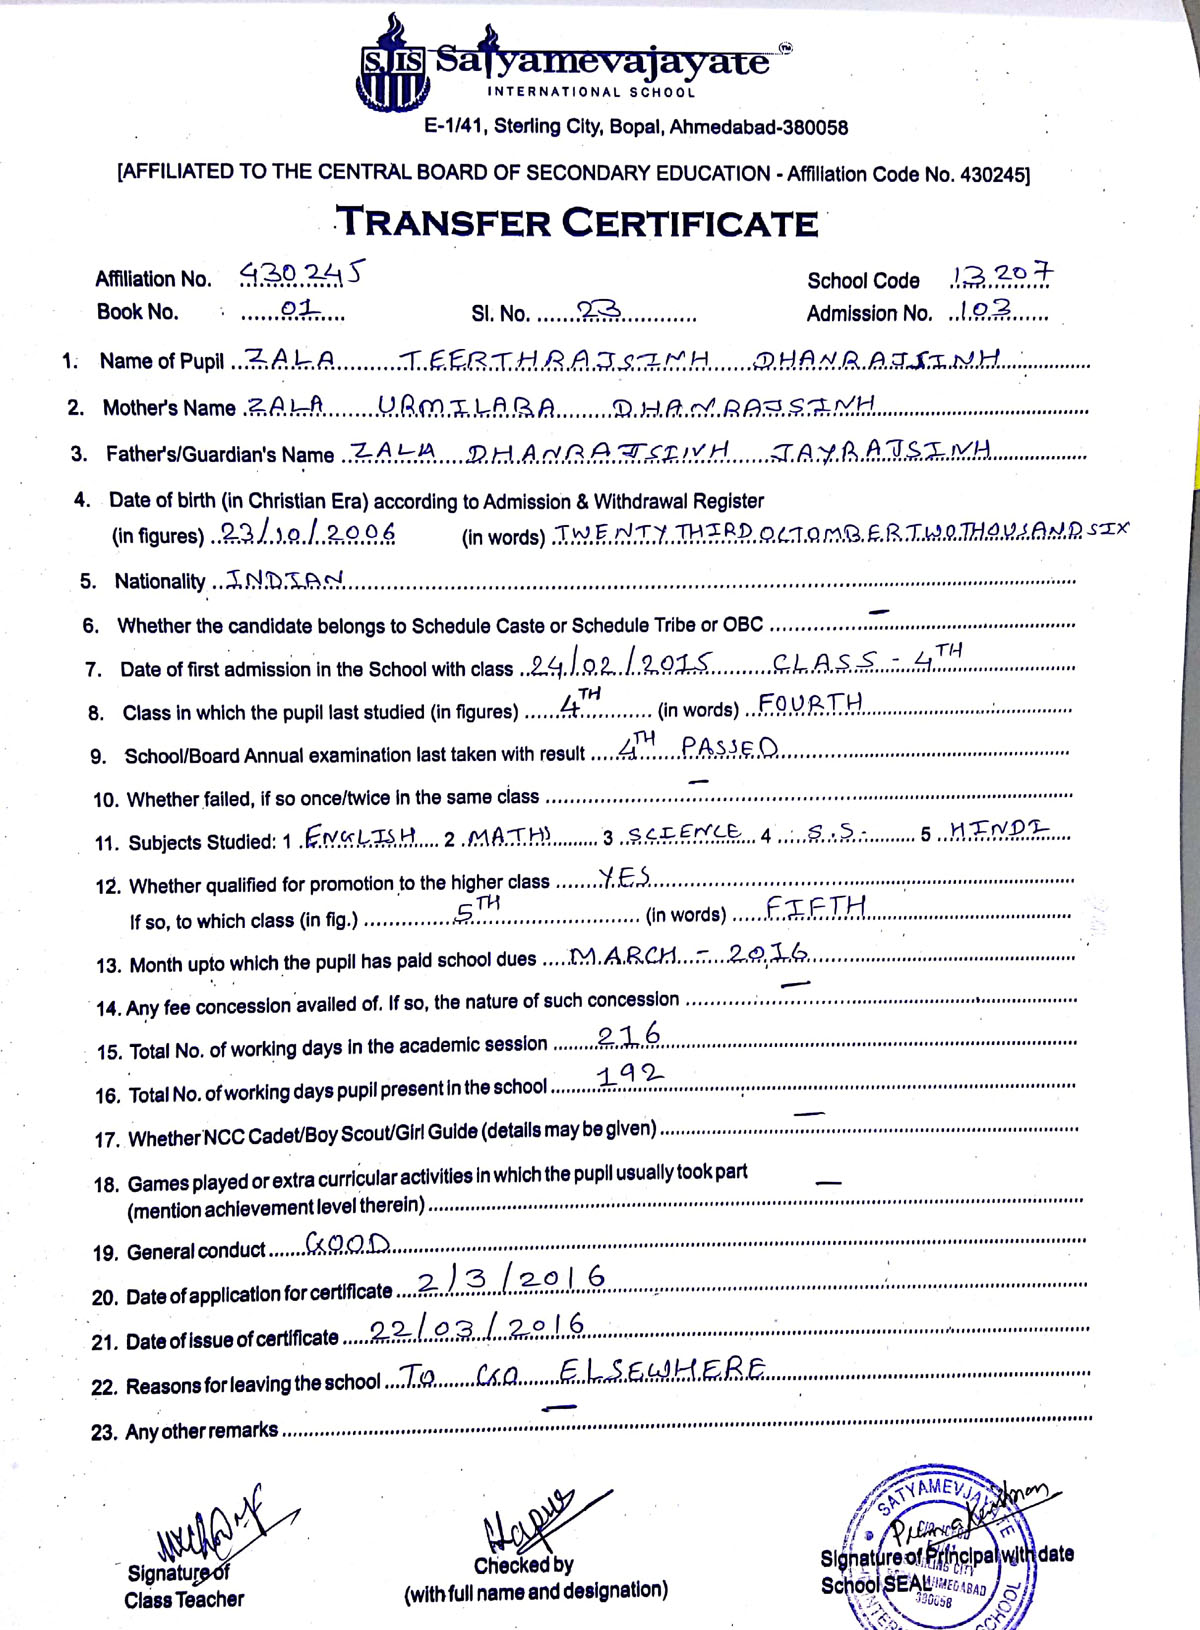 SJIS Satyamevajayate TM
INTERNATIONAL SCHOOL
E-1/41, Sterling City, Bopal, Ahmedabad-380058
[AFFILIATED TO THE CENTRAL BOARD OF SECONDARY EDUCATION - Affiliation Code No. 430245]
TRANSFER CERTIFICATE
Affiliation No. 430245 School Code 13207
Book No. : 01 Sl. No. 23 Admission No. 103
1. Name of Pupil ZALA TEERTHRAJSINH DHANRAJSINH
2. Mother's Name ZALA URMILABA DHANRAJSINH
3. Father's/Guardian's Name ZALA DHANRAJSINH JAYRAJSINH
4. Date of birth (in Christian Era) according to Admission & Withdrawal Register
(in figures) 23/10/2006 (in words) TWENTY THIRD OCTOMBER TWO THOUSAND SIX
5. Nationality INDIAN
6. Whether the candidate belongs to Schedule Caste or Schedule Tribe or OBC —
7. Date of first admission in the School with class 24/02/2015 CLASS - 4TH
8. Class in which the pupil last studied (in figures) 4TH (in words) FOURTH
9. School/Board Annual examination last taken with result 4TH PASSED
10. Whether failed, if so once/twice in the same class —
11. Subjects Studied: 1 ENGLISH 2 MATHS 3 SCIENCE 4 S.S. 5 HINDI
12. Whether qualified for promotion to the higher class YES
If so, to which class (in fig.) 5TH (in words) FIFTH
13. Month upto which the pupil has paid school dues MARCH - 2016
14. Any fee concession availed of. If so, the nature of such concession —
15. Total No. of working days in the academic session 216
16. Total No. of working days pupil present in the school 192
17. Whether NCC Cadet/Boy Scout/Girl Guide (details may be given) —
18. Games played or extra curricular activities in which the pupil usually took part
(mention achievement level therein) —
19. General conduct GOOD
20. Date of application for certificate 2/3/2016
21. Date of issue of certificate 22/03/2016
22. Reasons for leaving the school TO GO ELSEWHERE
23. Any other remarks —
SATYAMEVJAYATE
Signature of Checked by Signature of Principal with date
Class Teacher (with full name and designation) School SEAL
CITY
AHMEDABAD
380058
INTERNATIONAL SCHOOL